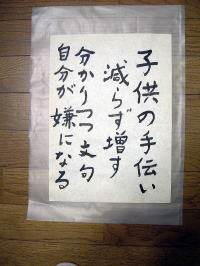 子供の手伝い
減らず増す
分かりつつ文句
自分が嫌になる